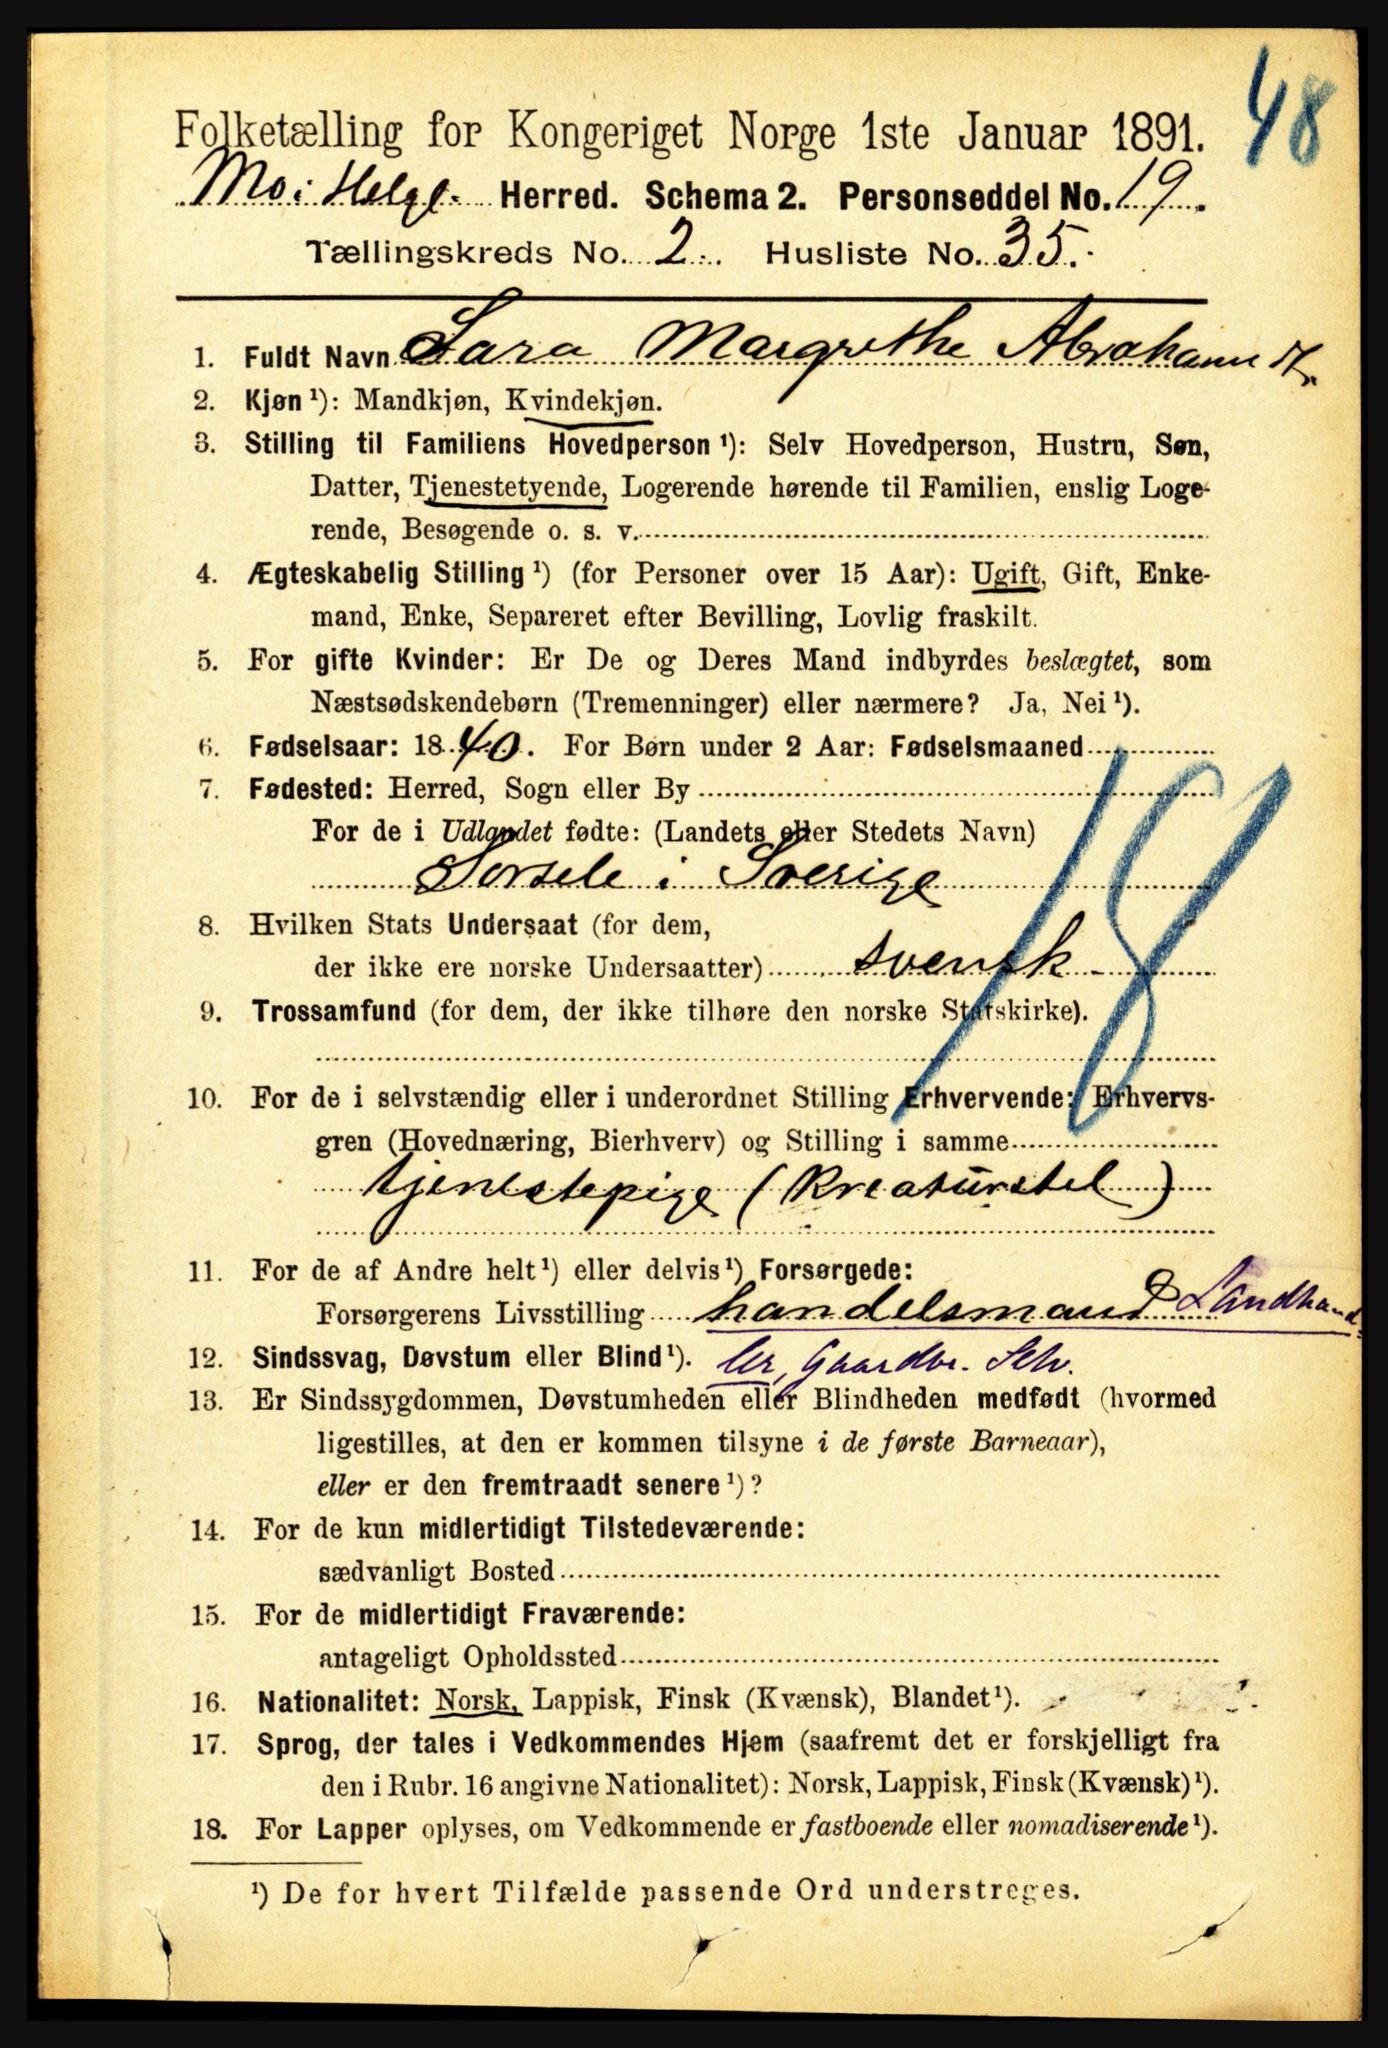 48
Folketælling for Kongeriget Norge 1ste Januar 1891.
Mo i Helgl. Herred. Schema 2. Personseddel No. 19.
Tællingskreds No. 2. Husliste No. 35.
1. Fuldt Navn Sara Margrethe Abrahams D.
2. Kjøn ¹): Mandkjøn, Kvindekjøn.
3. Stilling til Familiens Hovedperson ¹): Selv Hovedperson, Hustru, Søn,
Datter, Tjenestetyende, Logerende hørende til Familien, enslig Loge-
rende, Besøgende o. s. v.
4. Ægteskabelig Stilling ¹) (for Personer over 15 Aar): Ugift, Gift, Enke-
mand, Enke, Separeret efter Bevilling, Lovlig fraskilt.
5. For gifte Kvinder: Er De og Deres Mand indbyrdes beslægtet, som
Næstsødskendebørn (Tremenninger) eller nærmere? Ja, Nei ¹).
6. Fødselsaar: 1840. For Børn under 2 Aar: Fødselsmaaned
7. Fødested: Herred, Sogn eller By
For de i Udlandet fødte: (Landets eller Stedets Navn)
Sorsele i Sverige
8. Hvilken Stats Undersaat (for dem,
der ikke ere norske Undersaatter) svensk
9. Trossamfund (for dem, der ikke tilhøre den norske Statskirke).
18
10. For de i selvstændig eller i underordnet Stilling Erhvervende: Erhvervs-
gren (Hovednæring, Bierhverv) og Stilling i samme
tjenestepige (Kreaturstel)
11. For de af Andre helt ¹) eller delvis ¹) Forsørgede:
Forsørgerens Livsstilling handelsmand Landhand-
12. Sindssvag, Døvstum eller Blind ¹). ler, Gaardbr. Selv.
13. Er Sindssygdommen, Døvstumheden eller Blindheden medfødt (hvormed
ligestilles, at den er kommen tilsyne i de første Barneaar),
eller er den fremtraadt senere ¹)?
14. For de kun midlertidigt Tilstedeværende:
sædvanligt Bosted
15. For de midlertidigt Fraværende:
antageligt Opholdssted
16. Nationalitet: Norsk, Lappisk, Finsk (Kvænsk), Blandet ¹).
17. Sprog, der tales i Vedkommendes Hjem (saafremt det er forskjelligt fra
den i Rubr. 16 angivne Nationalitet): Norsk, Lappisk, Finsk (Kvænsk) ¹).
18. For Lapper oplyses, om Vedkommende er fastboende eller nomadiserende ¹).
¹) De for hvert Tilfælde passende Ord understreges.